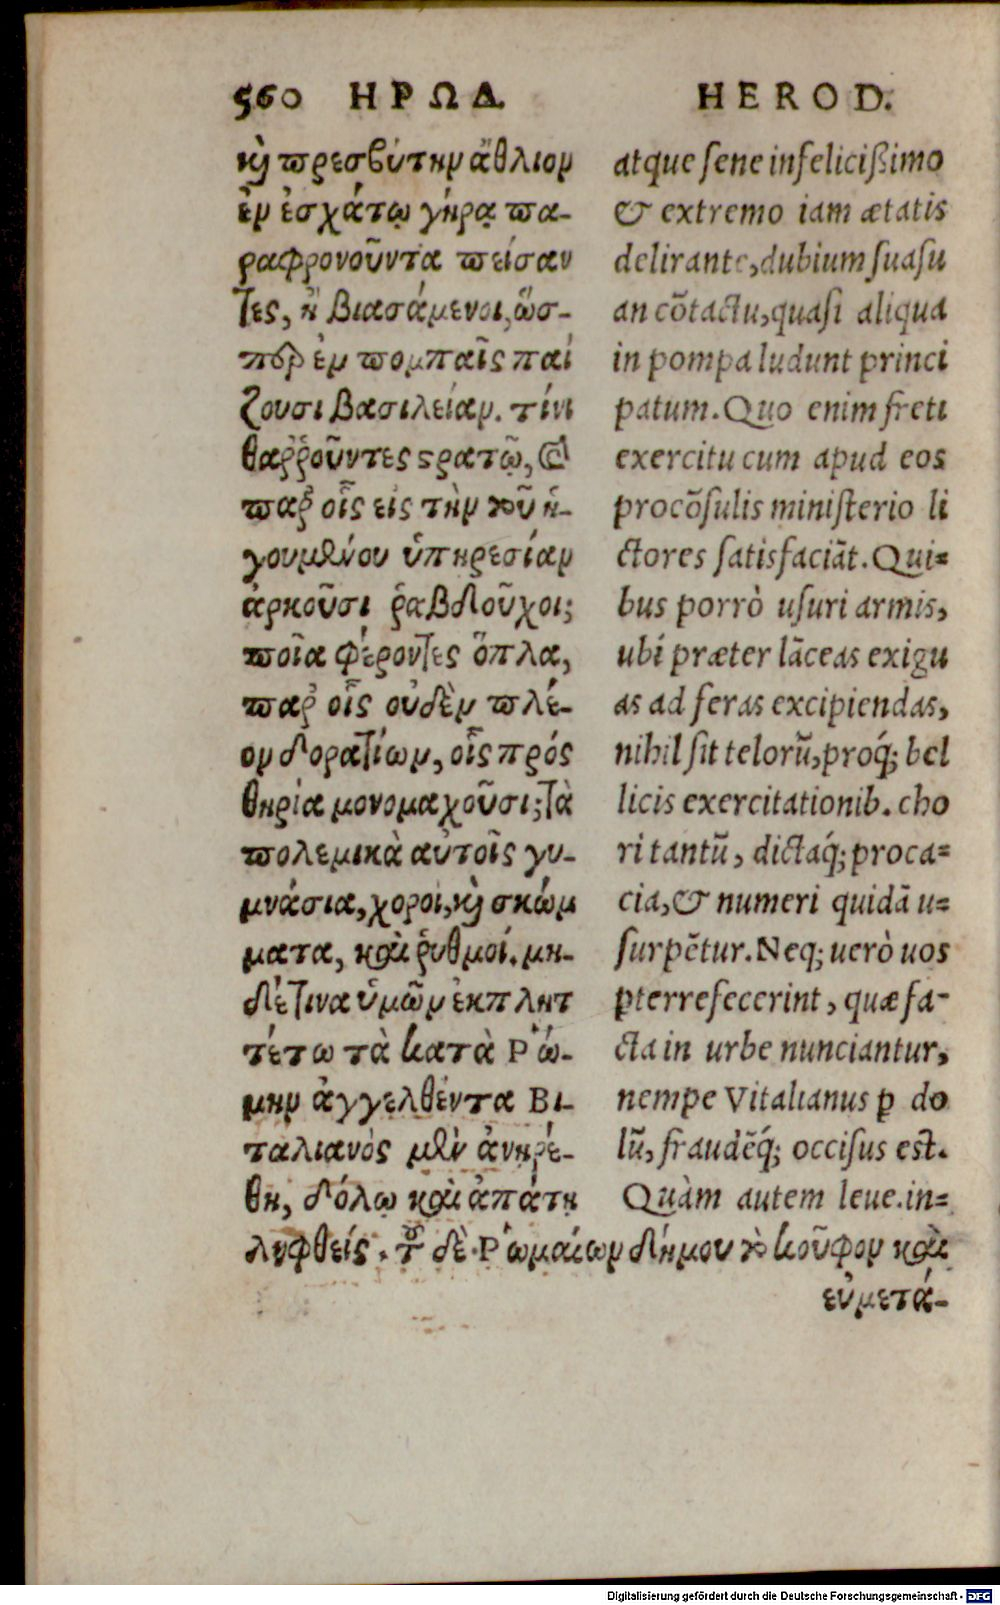 560 ΗΡΩΔ.
καὶ πρεσβύτην ἄθλιον
ἐν ἐσχάτῳ γήρᾳ πα-
ραφρονοῦντα πείσαν
τες, ἢ βιασάμενοι, ὥσ-
περ ἐν πομπαῖς παί
ζουσι βασιλείαν. τίνι
θαῤῥοῦντες στρατῷ,
παρ' οἷς εἰς τὴν τοῦ ἡ-
γουμένου ὑπηρεσίαν
ἀρκοῦσι ῥαβδοῦχοι;
ποῖα φέροντες ὅπλα,
παρ' οἷς οὐδὲν πλέ-
ον δορατίων, οἷς πρός
θηρία μονομαχοῦσι; τὰ
πολεμικὰ αὐτοῖς γυ-
μνάσια, χοροὶ, καὶ σκώμ
ματα, καὶ ῥυθμοί. μη-
δέ τινα ὑμῶν ἐκπλητ
τέτω τὰ κατὰ Ῥώ-
μην ἀγγελθέντα Βι-
ταλιανὸς μὲν ἀνηρέ-
θη, δόλῳ καὶ ἀπάτῃ
ληφθείς. τοῦ δὲ Ῥωμαίων δήμου τὸ κοῦφον καὶ
εὐμετά-
HEROD.
atque sene infelicißimo
& extremo iam ætatis
delirante, dubium suasu
an cõtactu, quasi aliqua
in pompa ludunt princi
patum. Quo enim freti
exercitu cum apud eos
procõsulis ministerio li
ctores satisfaciãt. Qui=
bus porrò usuri armis,
ubi præter lãceas exigu
as ad feras excipiendas,
nihil sit telorũ, proq́; bel
licis exercitationib. cho
ri tantũ, dictaq́; proca=
cia, & numeri quidã u=
surpẽtur. Neq; uerò uos
pterrefecerint, quæ fa-
cta in urbe nunciantur,
nempe Vitalianus p do
lũ, fraudẽq́; occisus est.
Quàm autem leue. in=
Digitalisierung gefördert durch die Deutsche Forschungsgemeinschaft - DFG